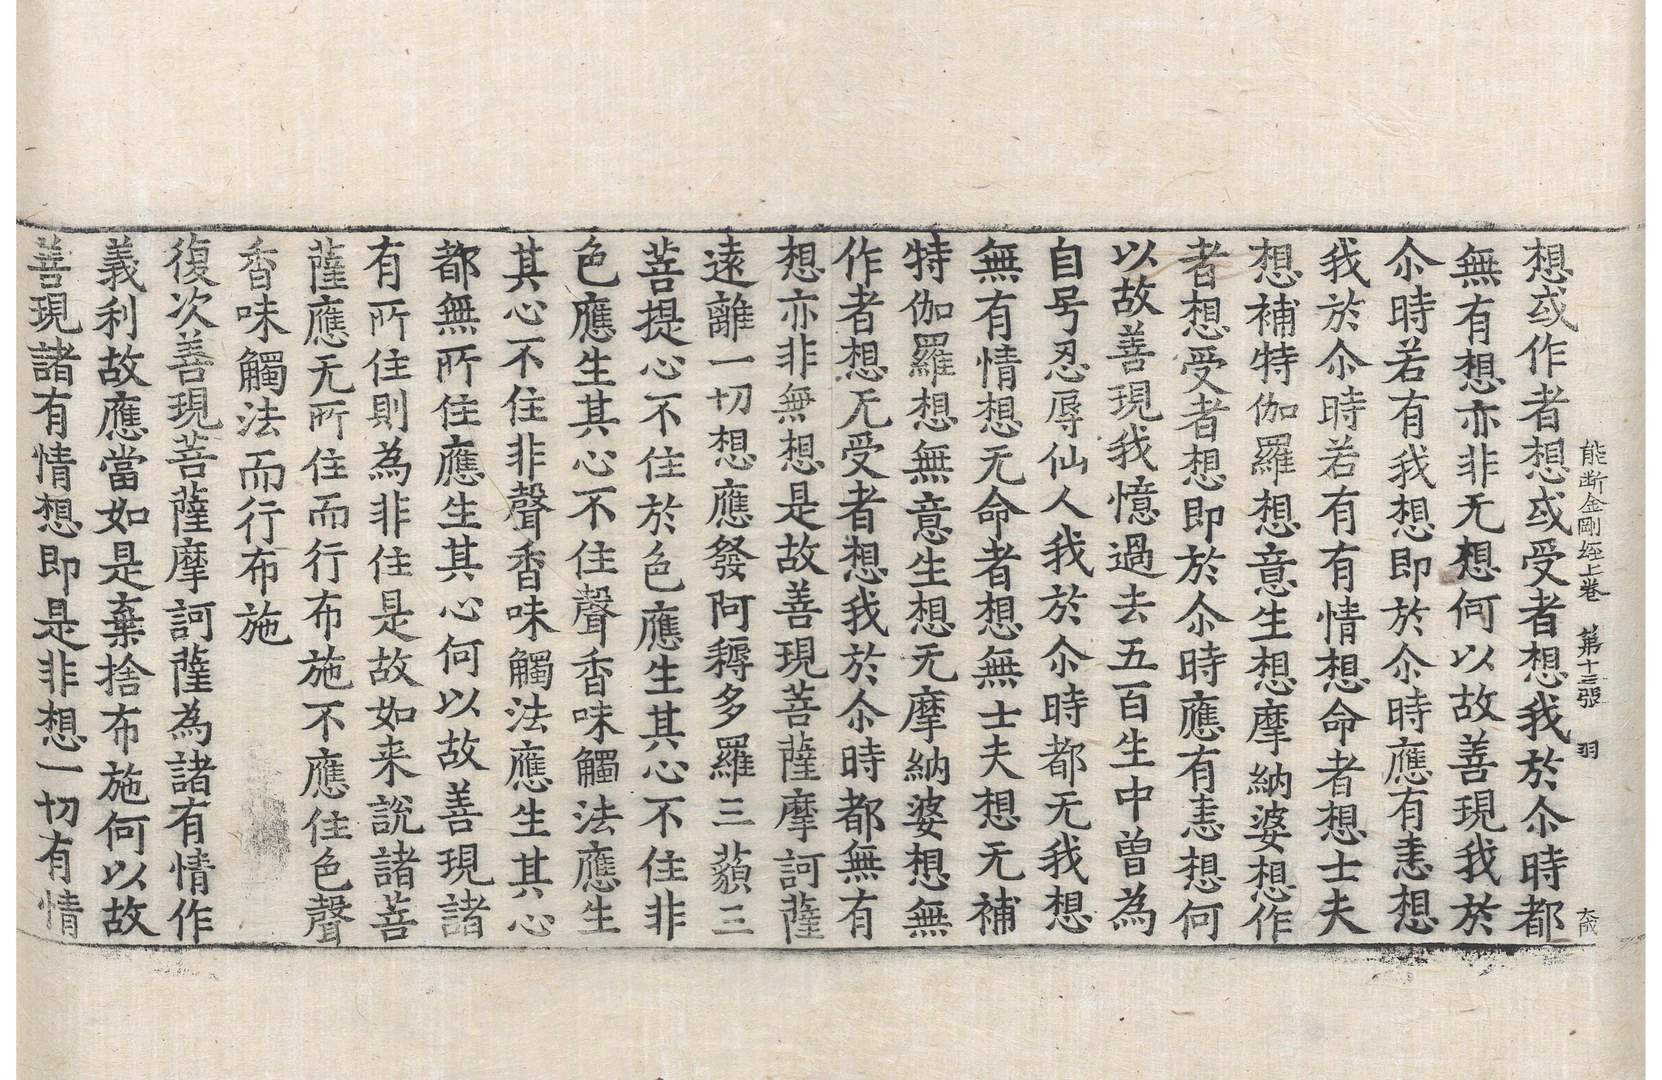 能断金剛經上卷　第十三張　羽
大成
想或作者想或受者想我於尒時都
無有想亦非无想何以故善現我於
尒時若有我想即於尒時應有恚想
我於尒時若有有情想命者想士夫
想補特伽羅想意生想摩納婆想作
者想受者想即於尒時應有恚想何
以故善現我憶過去五百生中曾為
自号忍辱仙人我於尒時都无我想
無有情想无命者想無士夫想无補
特伽羅想無意生想无摩納婆想無
作者想无受者想我於尒時都無有
想亦非無想是故善現菩薩摩訶薩
遠離一切想應發阿耨多羅三藐三
菩提心不住於色應生其心不住非
色應生其心不住聲香味觸法應生
其心不住非聲香味觸法應生其心
都無所住應生其心何以故善現諸
有所住則為非住是故如来說諸菩
薩應无所住而行布施不應住色聲
香味觸法而行布施
復次善現菩薩摩訶薩為諸有情作
義利故應當如是棄捨布施何以故
善現諸有情想即是非想一切有情